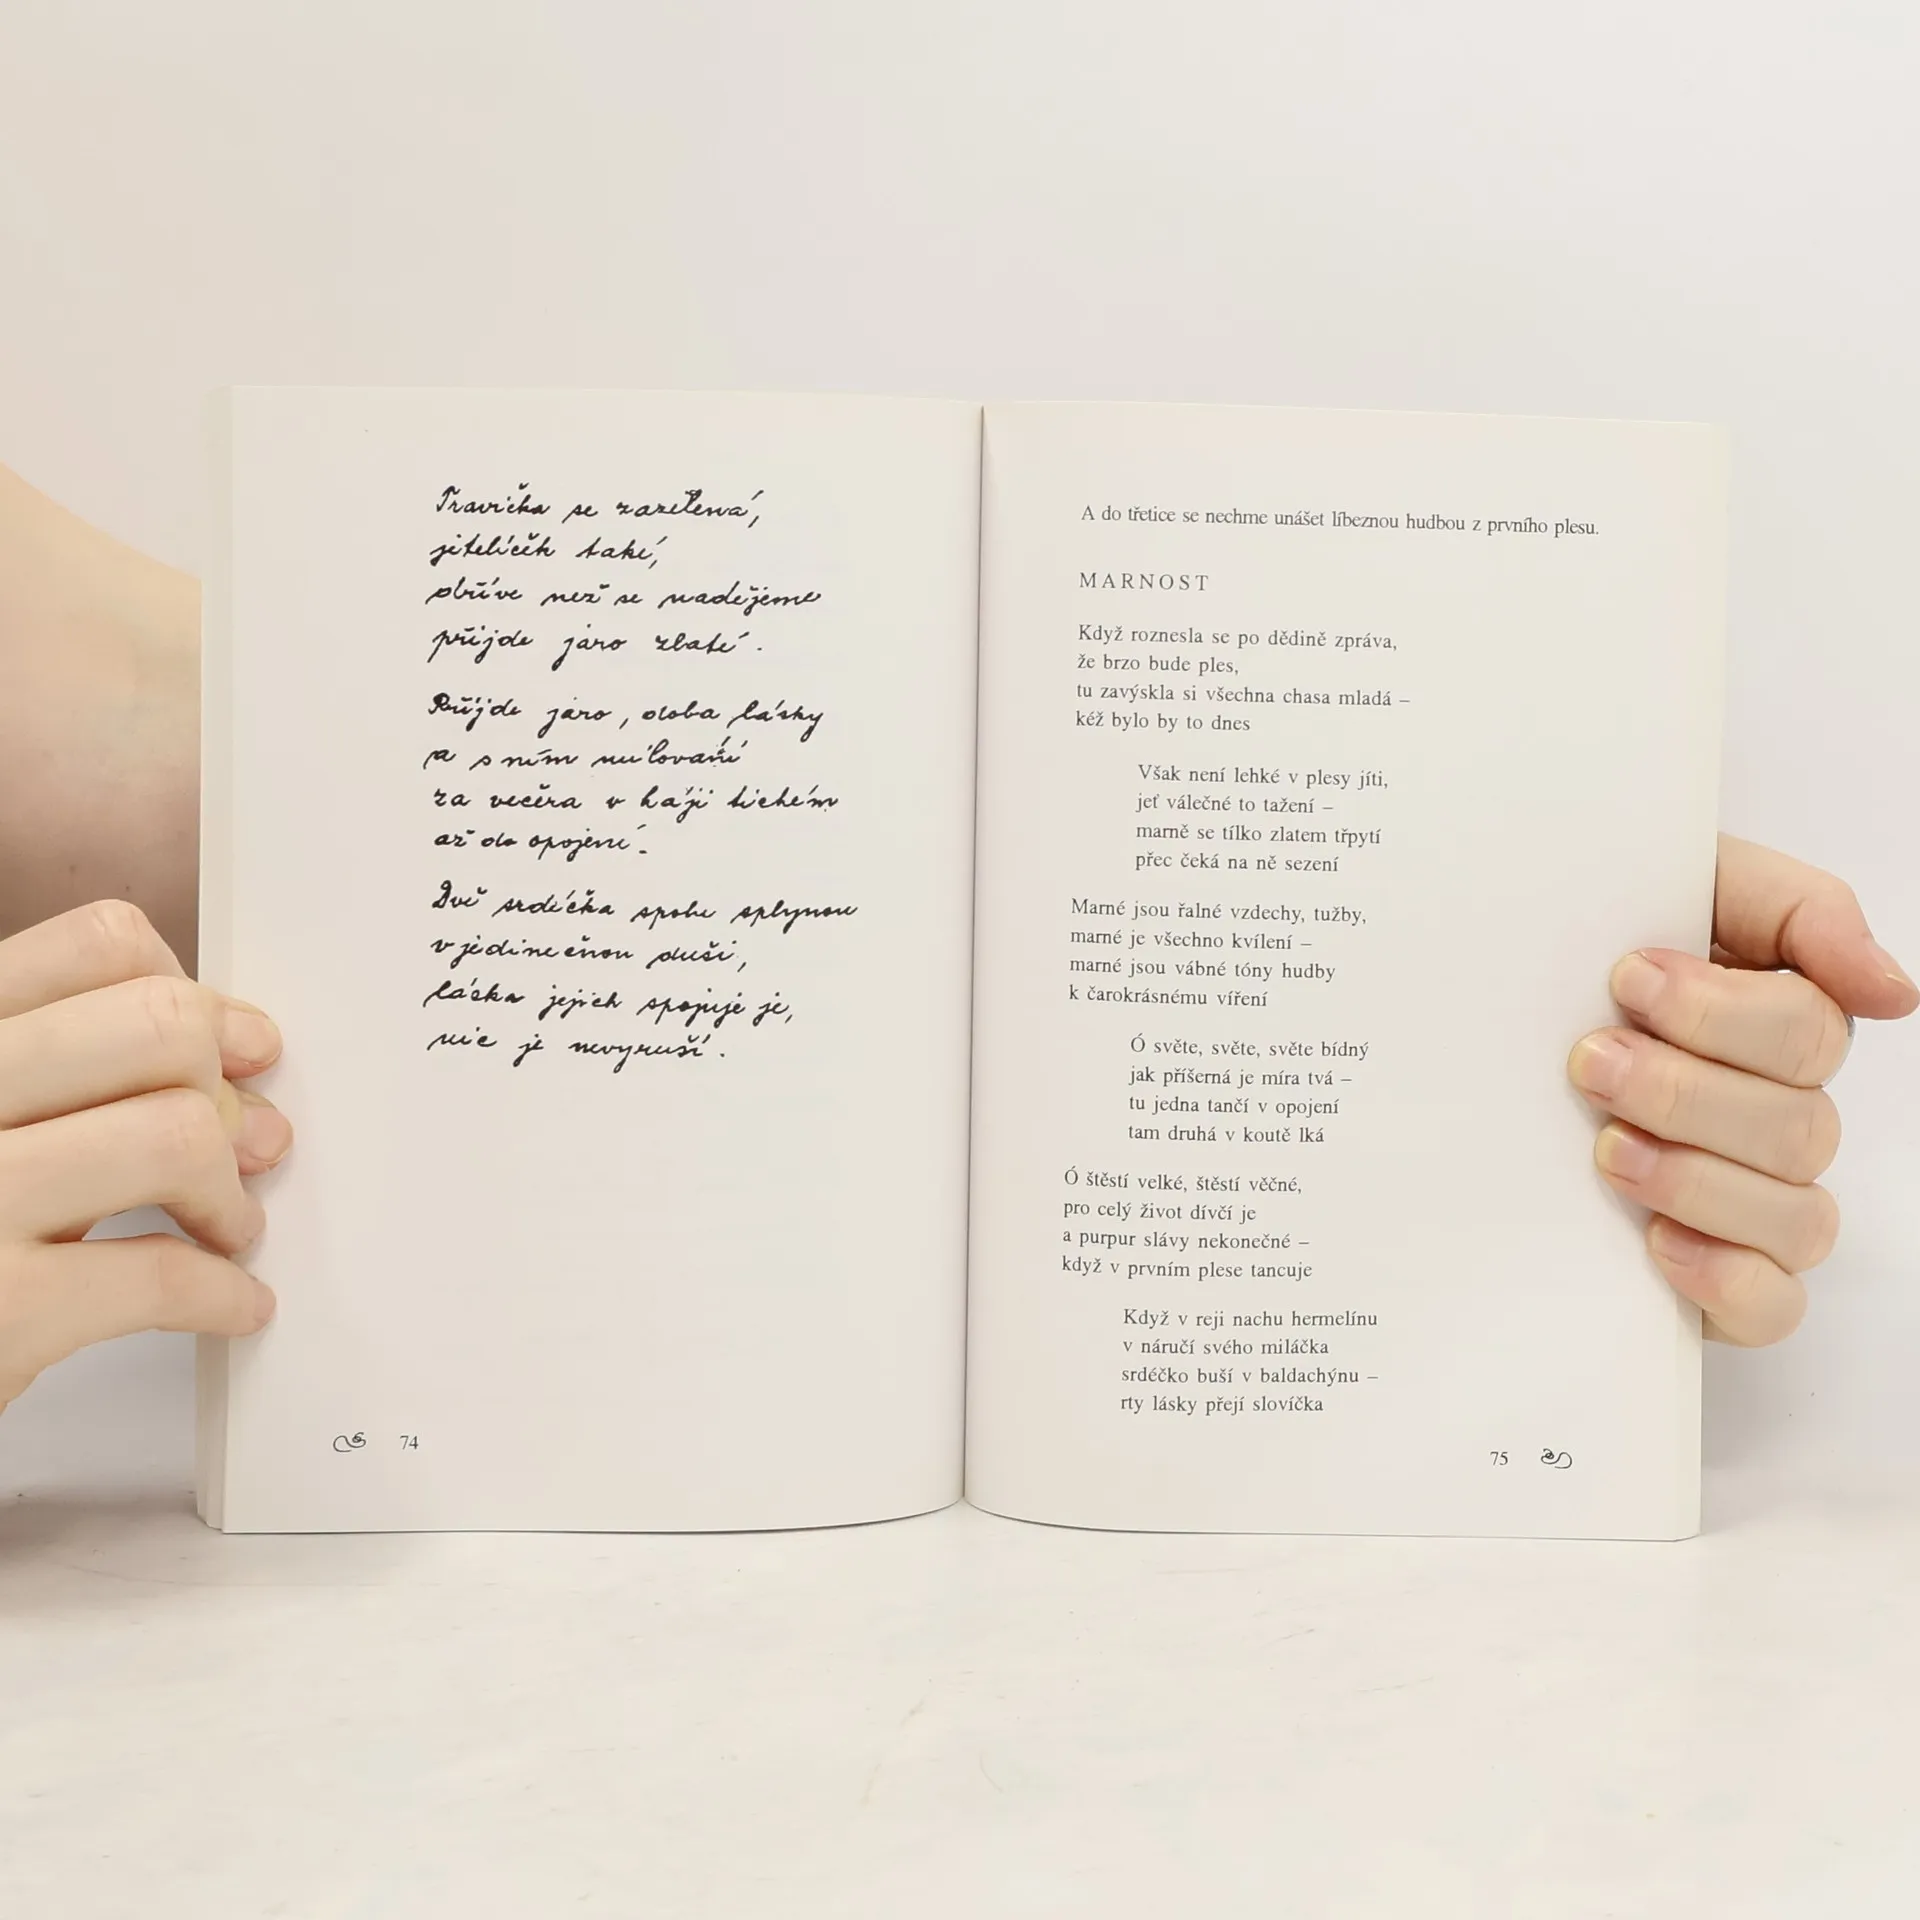 Travička se zazelená,
jetelíček také,
dříve než se nadějeme
přijde jaro zlaté.
Přijde jaro, doba lásky
a s ním milování
za večera v háji tichém
až do opojení.
Dvě srdéčka spolu splynou
v jedinečnou duši,
láska jejich spojuje je,
nic je nevyruší.
74
A do třetice se nechme unášet líbeznou hudbou z prvního plesu.
MARNOST
Když roznesla se po dědině zpráva,
že brzo bude ples,
tu zavýskla si všechna chasa mladá –
kéž bylo by to dnes
Však není lehké v plesy jíti,
jeť válečné to tažení –
marně se tílko zlatem třpytí
přec čeká na ně sezení
Marné jsou řalné vzdechy, tužby,
marné je všechno kvílení –
marné jsou vábné tóny hudby
k čarokrásnému víření
Ó světe, světe, světe bídný
jak příšerná je míra tvá –
tu jedna tančí v opojení
tam druhá v koutě lká
Ó štěstí velké, štěstí věčné,
pro celý život dívčí je
a purpur slávy nekonečné –
když v prvním plese tancuje
Když v reji nachu hermelínu
v náručí svého miláčka
srdéčko buší v baldachýnu –
rty lásky přejí slovíčka
75